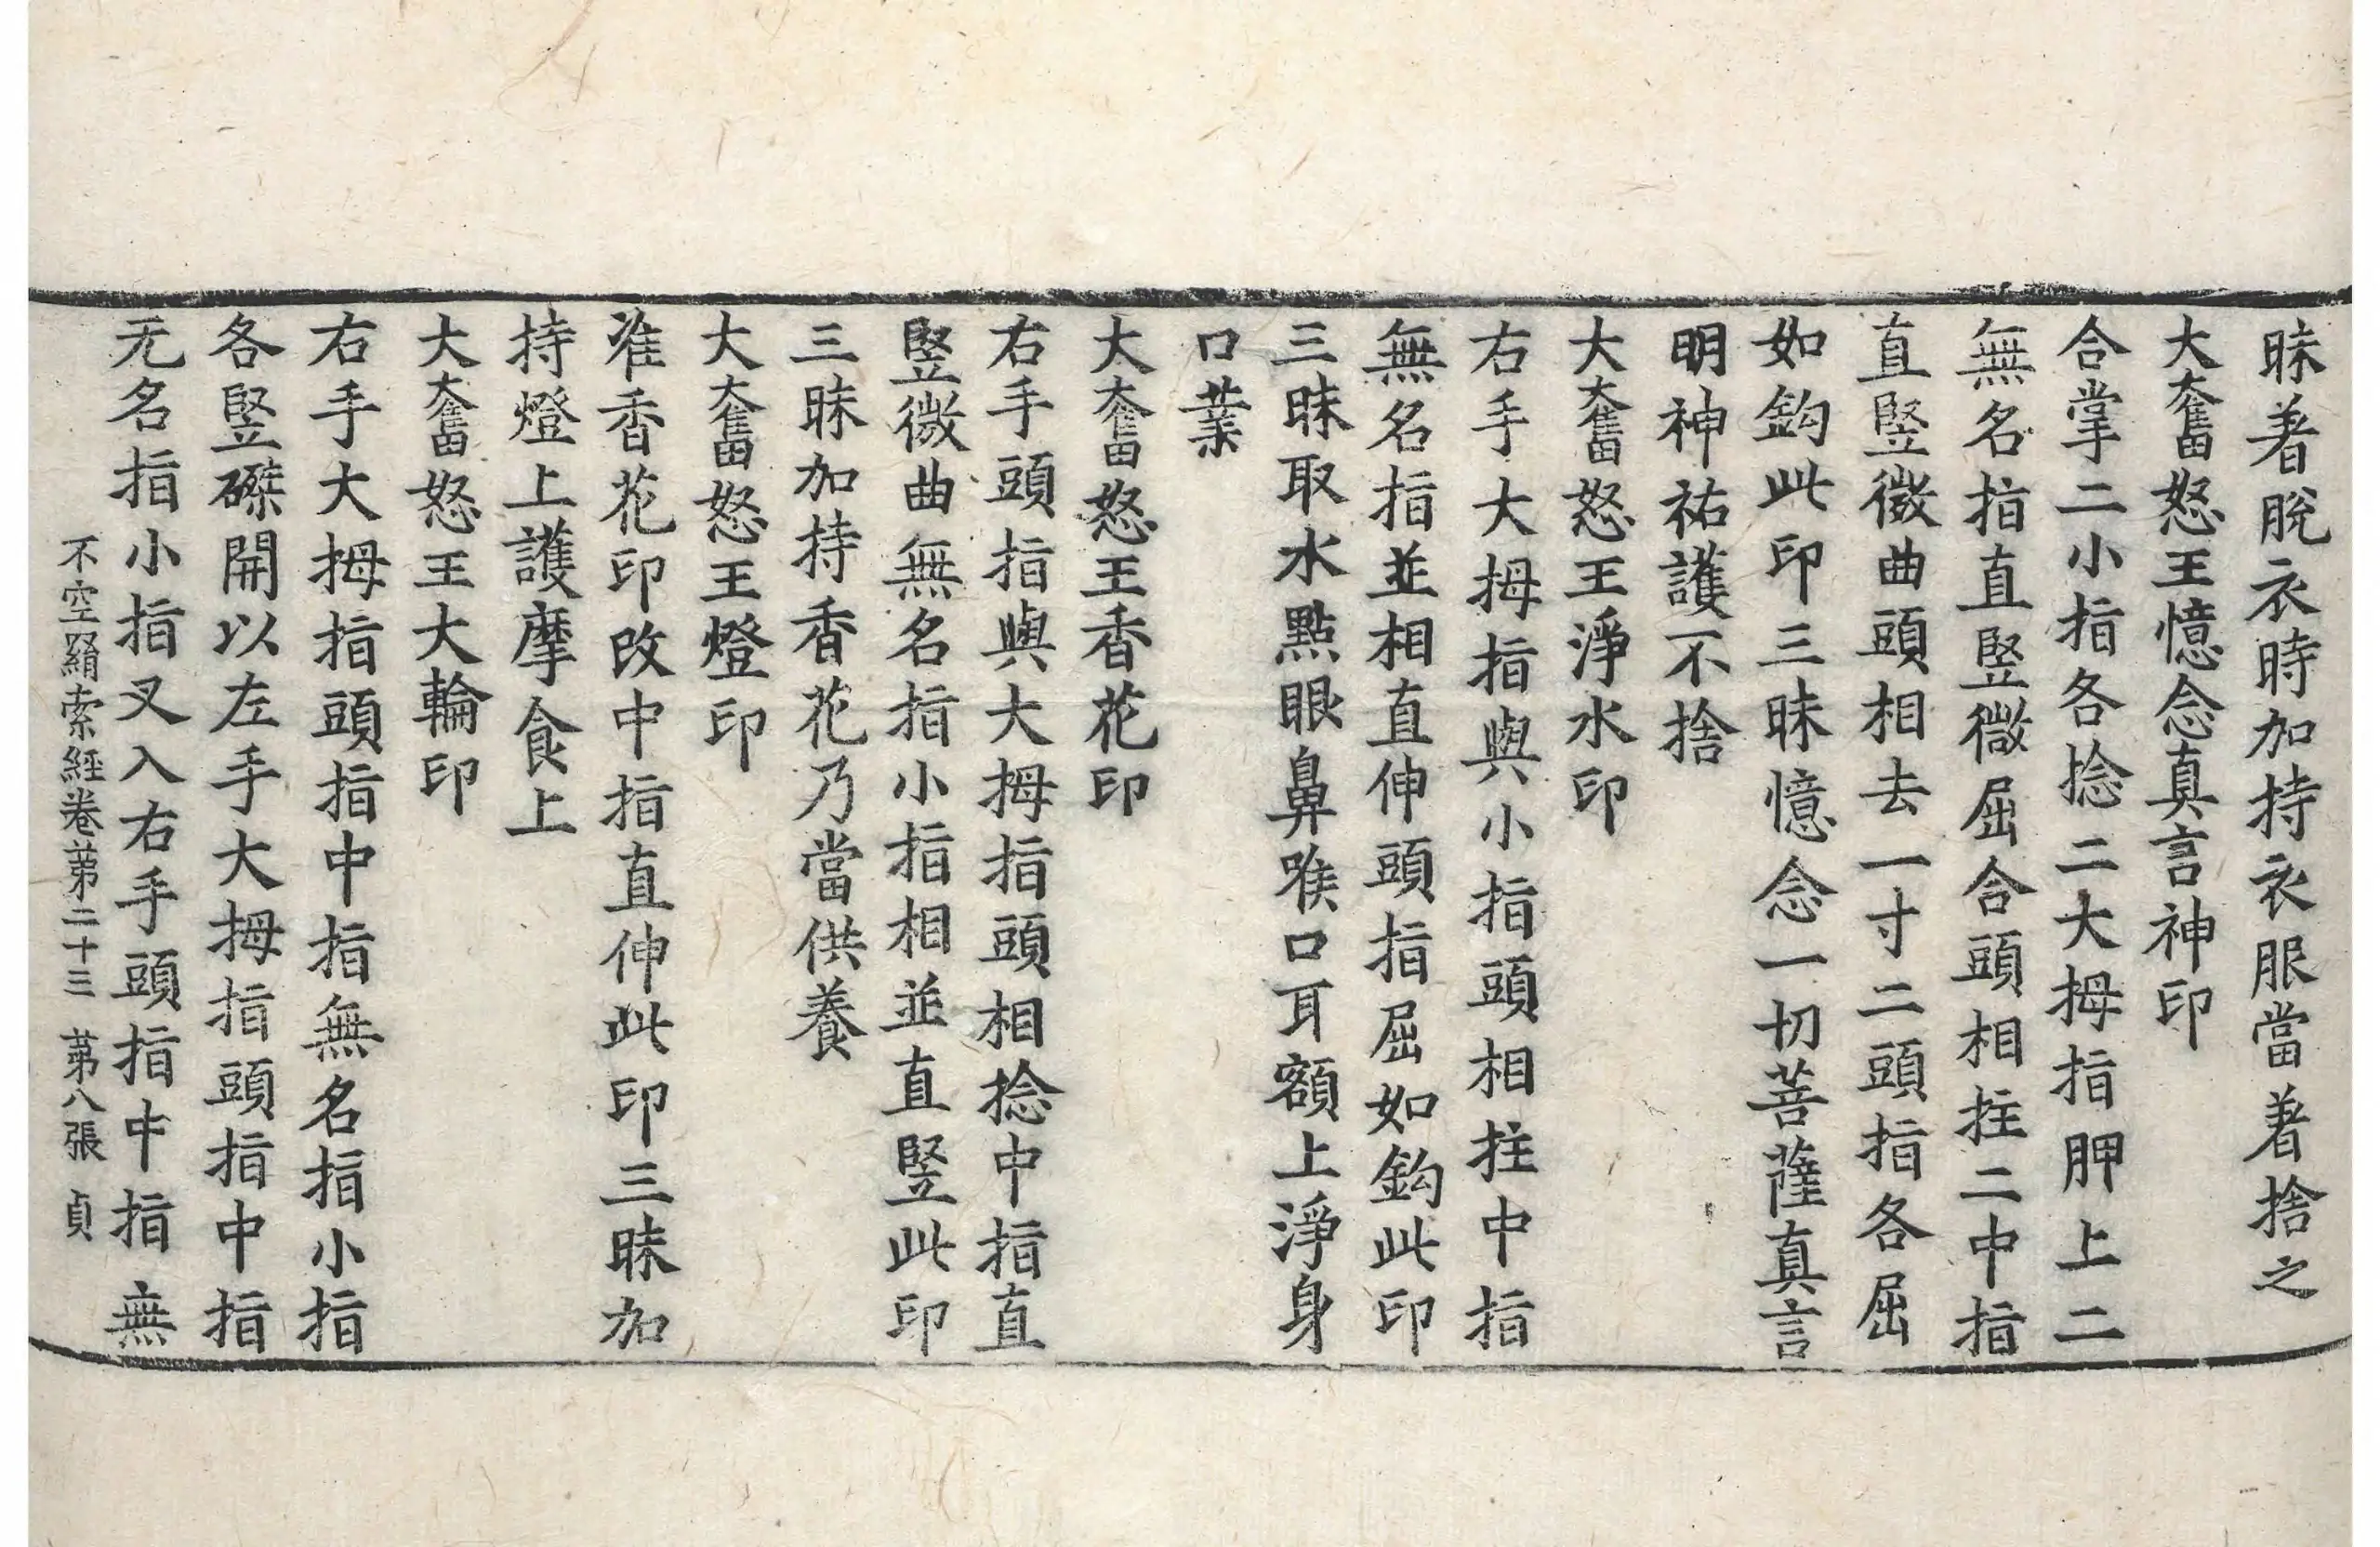 昧著脫衣時加持衣服當著捨之
大奮怒王憶念真言神印
合掌二小指各捻二大拇指胛上二
無名指直竪微屈合頭相拄二中指
直竪微曲頭相去一寸二頭指各屈
如鈎此印三昧憶念一切菩薩真言
明神祐護不捨
大奮怒王淨水印
右手大拇指與小指頭相拄中指
無名指並相直伸頭指屈如鈎此印
三昧取水點眼鼻喉口耳額上淨身
口業
大奮怒王香花印
右手頭指與大拇指頭相捻中指直
竪微曲無名指小指相並直竪此印
三昧加持香花乃當供養
大奮怒王燈印
准香花印改中指直伸此印三昧加
持燈上護摩食上
大奮怒王大輪印
右手大拇指頭指中指無名指小指
各竪磔開以左手大拇指頭指中指
无名指小指叉入右手頭指中指無
不空羂索經卷苐二十三 苐八張 貞